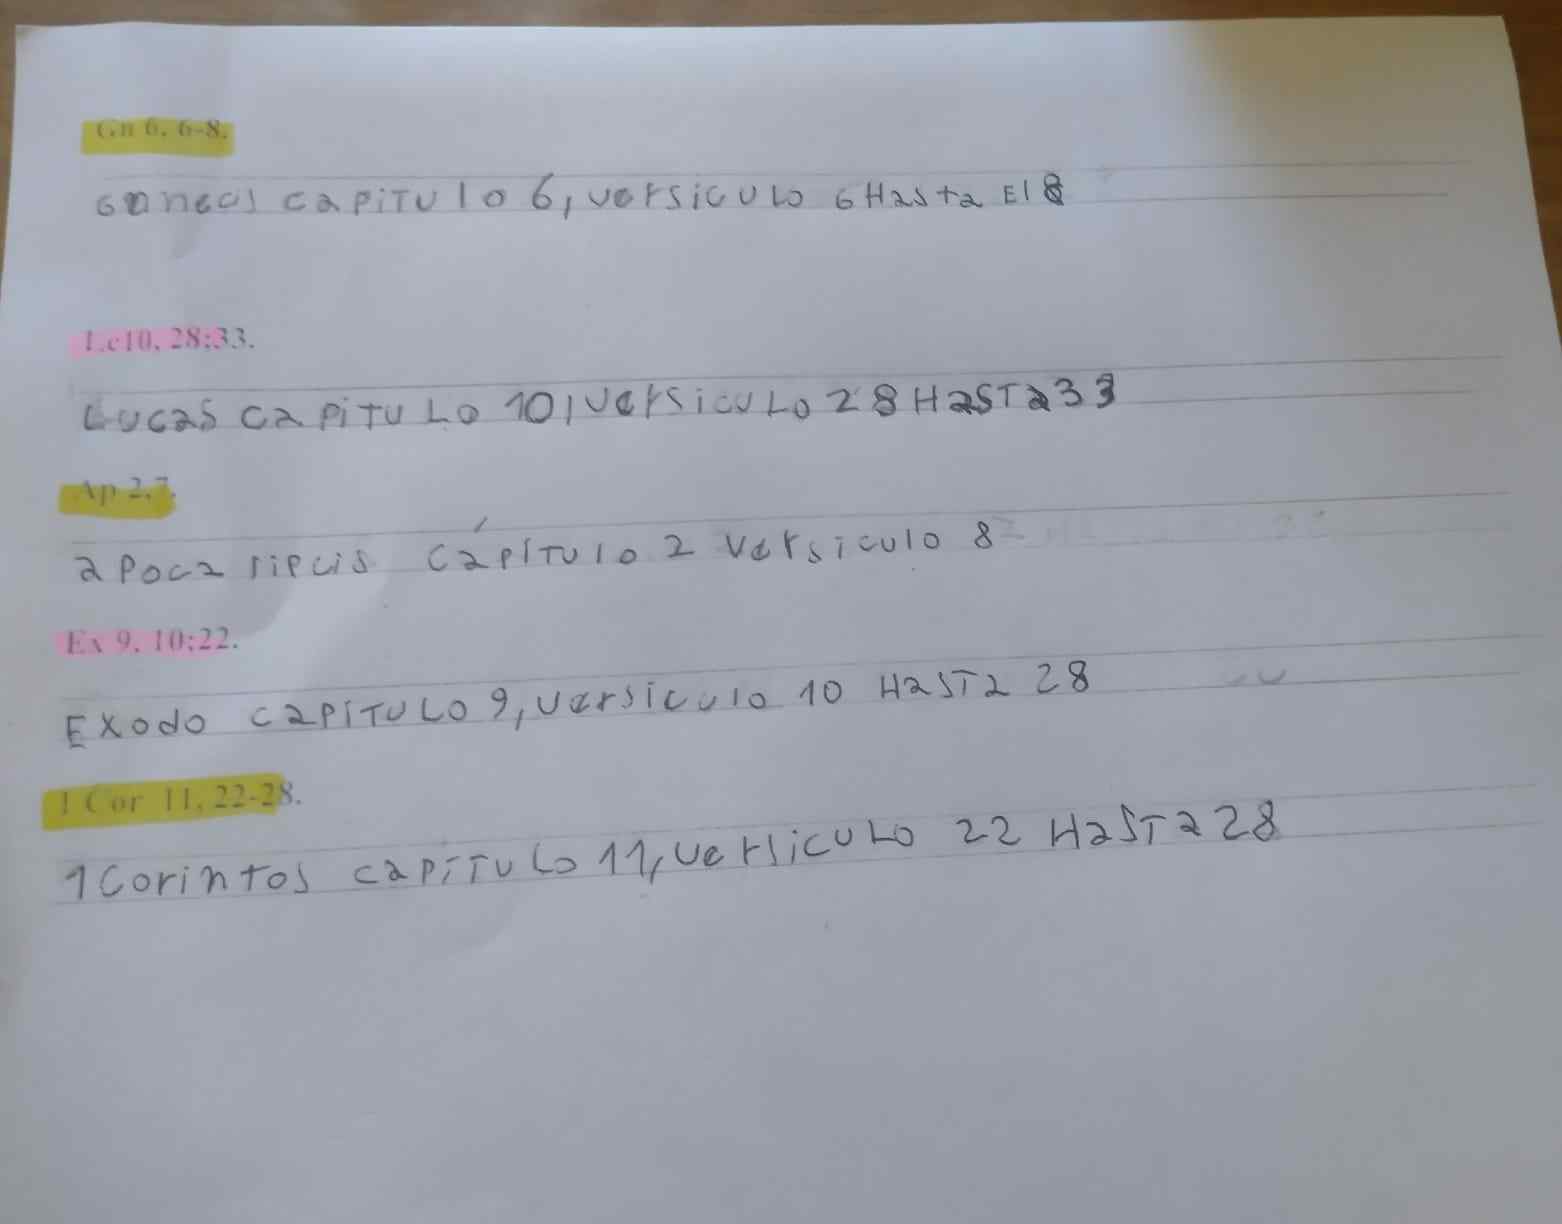 Gn 6, 6-8.
Goneos capiTulo 6, versiculo 6 Hasta El 8
Lc10, 28:33.
Lucas capiTuLo 10, versicuLo 28 HasTa 33
Ap 2,7.
apoca lipcis cápíTulo 2 versiculo 8
Ex 9, 10:22.
Exodo capíTuLo 9, versiculo 10 HasTa 28
1 Cor 11, 22-28.
1 Corintos capíTuLo 11, versicuLo 22 HasTa 28